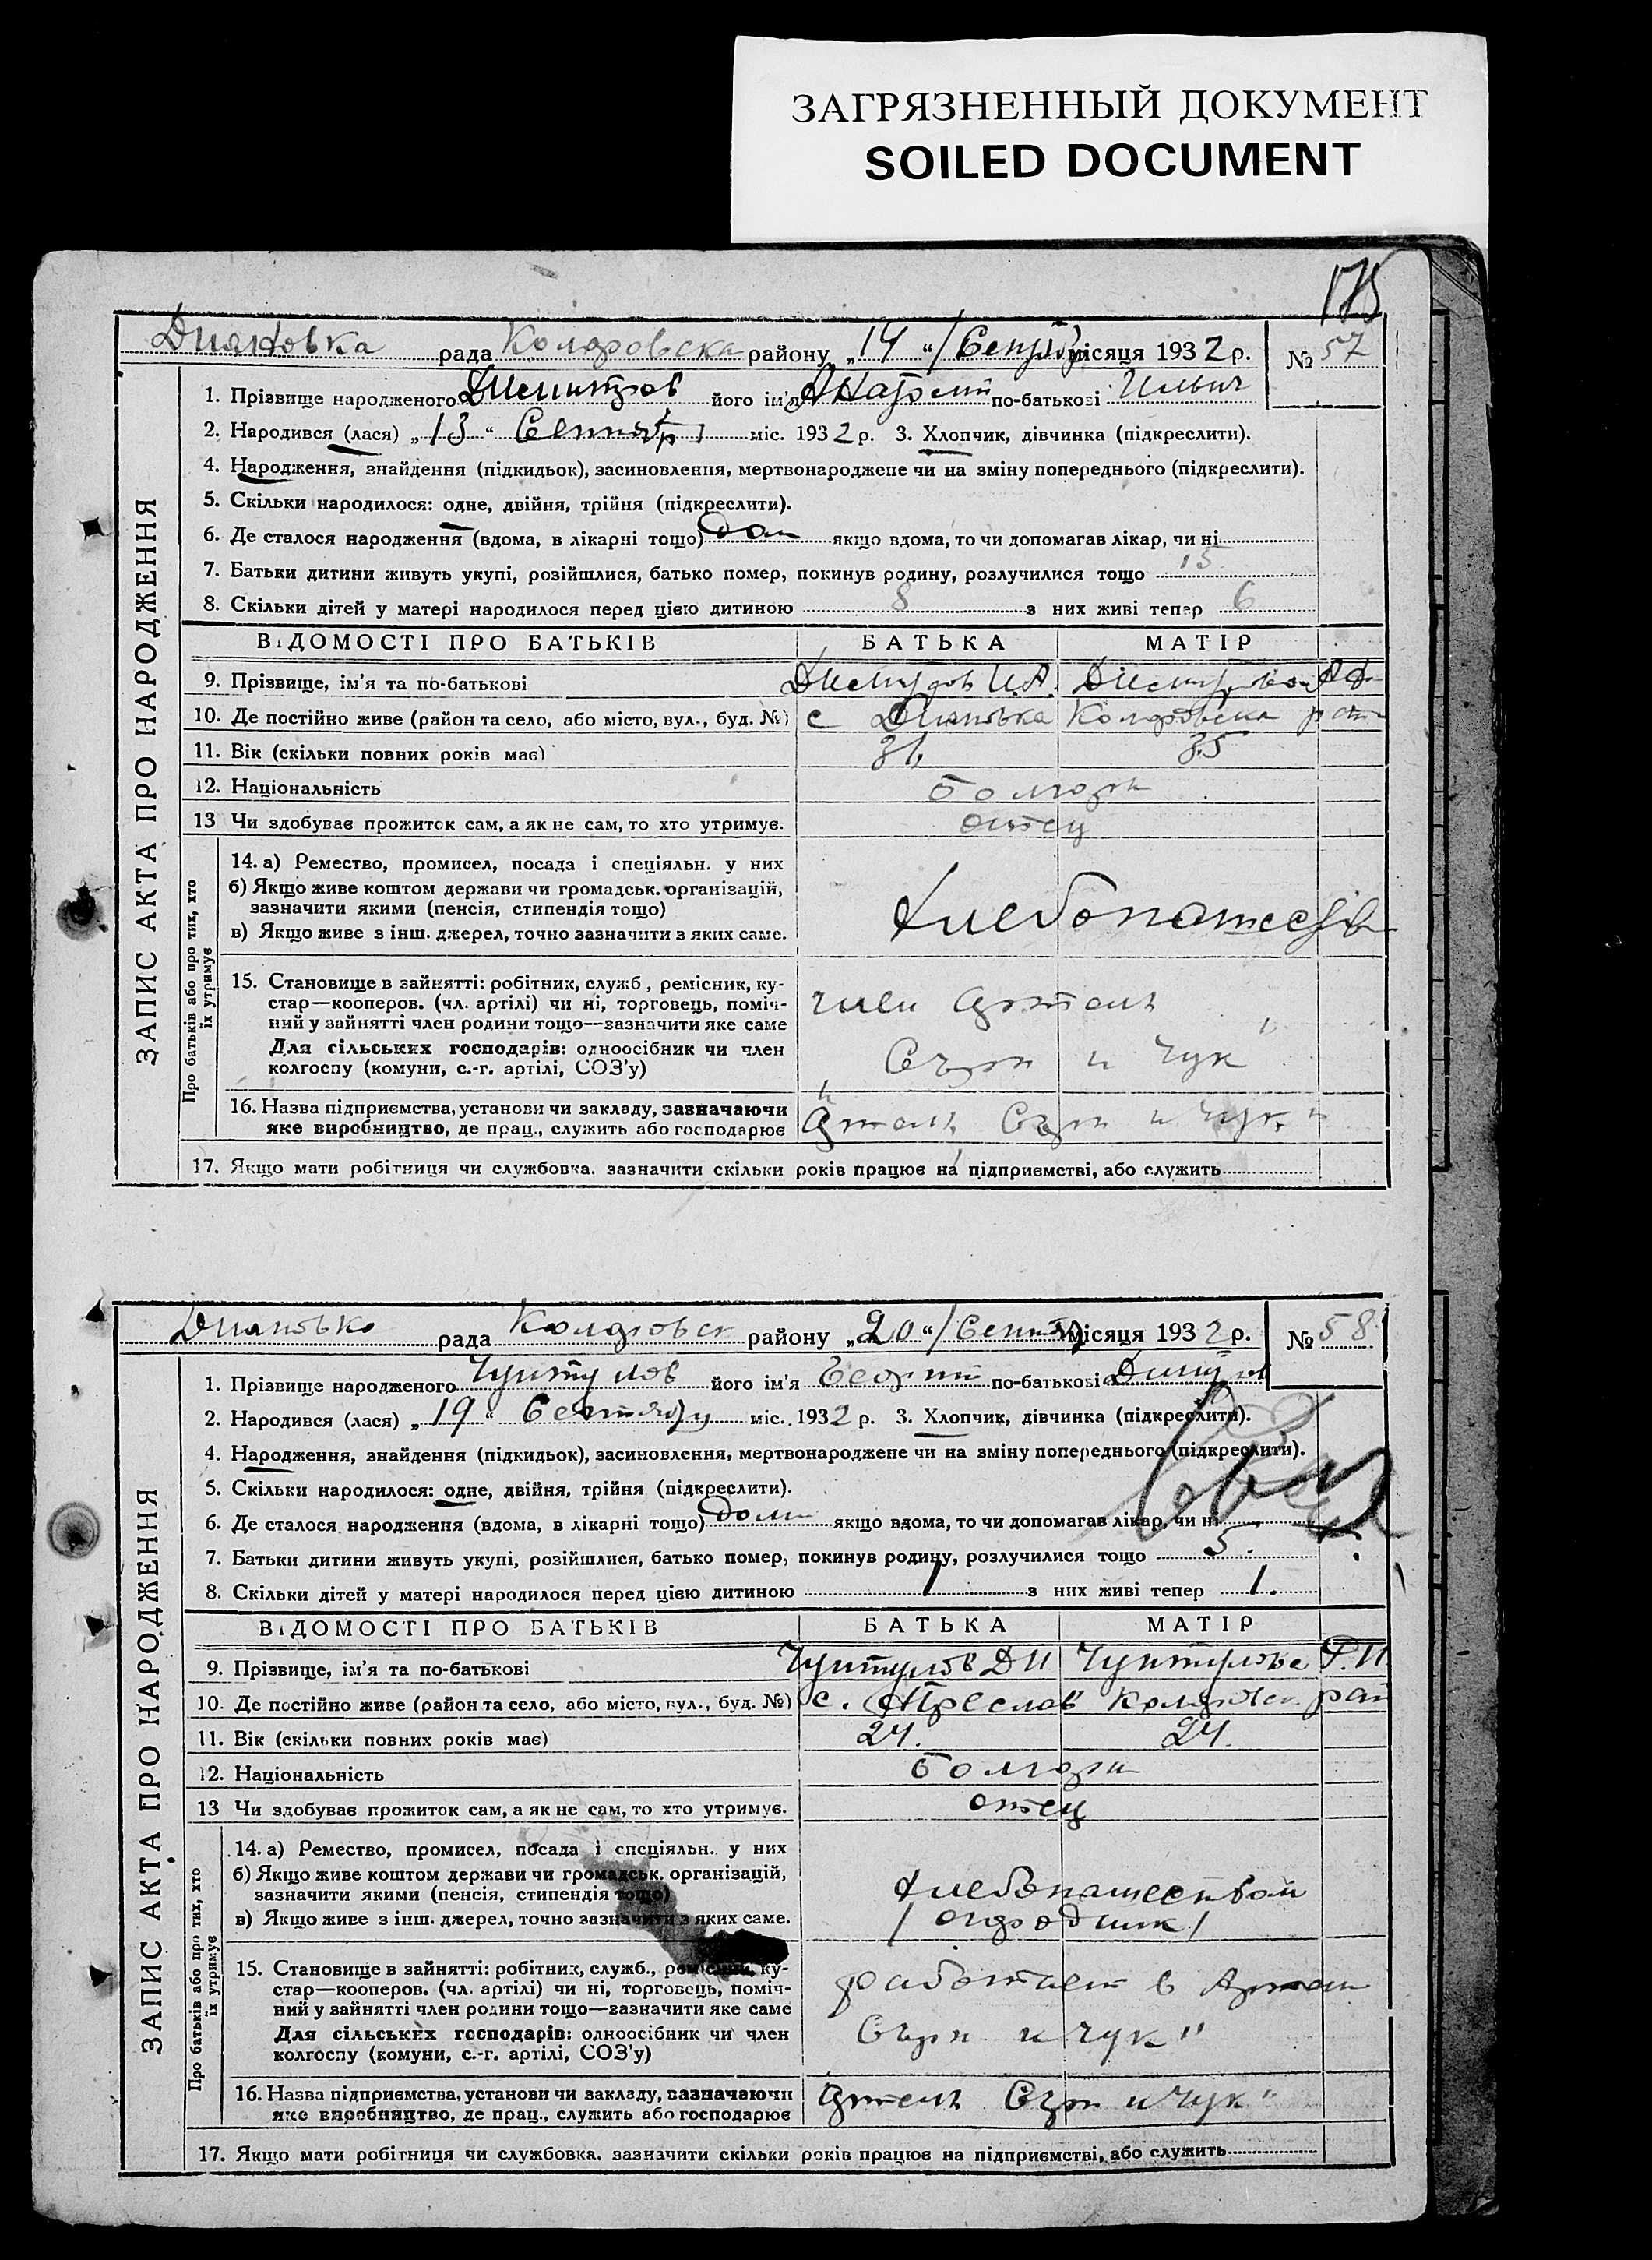 ЗАГРЯЗНЕННЫЙ ДОКУМЕНТ
SOILED DOCUMENT
175
Дияновка рада Коларовска району „14“ /Сентяб місяця 1932 р. № 57
ЗАПИС АКТА ПРО НАРОДЖЕННЯ
1. Прізвище народженого Димитров його ім'я по-батькові Ильич
2. Народився (лася) „13“ Сентябр міс. 1932 р. 3. Хлопчик, дівчинка (підкреслити).
4. Народження, знайдення (підкидьок), засиновлення, мертвонароджене чи на зміну попереднього (підкреслити).
5. Скільки народилося: одне, двійня, трійня (підкреслити).
6. Де сталося народження (вдома, в лікарні тощо) дом якщо вдома, то чи допомагав лікар, чи ні
7. Батьки дитини живуть укупі, розійшлися, батько помер, покинув родину, розлучилися тощо 15
8. Скільки дітей у матері народилося перед цією дитиною 8 з них живі тепер 6
ВІДОМОСТІ ПРО БАТЬКІВ БАТЬКА МАТІР
9. Прізвище, ім'я та по-батькові Димитров И.А. Димитрова
10. Де постійно живе (район та село, або місто, вул., буд. №) с Дияновка Коларовска
11. Вік (скільки повних років має) 35
12. Національність болгари
13 Чи здобуває прожиток сам, а як не сам, то хто утримує. отец
Про батьків або про тих, хто їх утримує
14. а) Ремество, промисел, посада і спеціяльн. у них
б) Якщо живе коштом держави чи громадськ. організацій,
зазначити якими (пенсія, стипендія тощо)
в) Якщо живе з інш. джерел, точно зазначити з яких саме.
15. Становище в зайнятті: робітник, служб., ремісник, ку-
стар—кооперов. (чл. артілі) чи ні, торговець, поміч- член артели
ний у зайнятті член родини тощо—зазначити яке саме
Для сільських господарів: одноосібник чи член Сърп и Чук"
колгоспу (комуни, с.-г. артілі, СОЗ'у)
16. Назва підприємства, установи чи закладу, зазначаючи
яке виробництво, де прац., служить або господарює Сърп и Чук"
17. Якщо мати робітниця чи службовка, зазначити скільки років працює на підприємстві, або служить
Дияновка рада Коларовск району „20“ /Сентяб місяця 1932 р. № 58
ЗАПИС АКТА ПРО НАРОДЖЕННЯ
1. Прізвище народженого Чунтулов його ім'я Георгий по-батькові
2. Народився (лася) „19“ міс. 1932 р. 3. Хлопчик, дівчинка (підкреслити).
4. Народження, знайдення (підкидьок), засиновлення, мертвонароджене чи на зміну попереднього (підкреслити).
5. Скільки народилося: одне, двійня, трійня (підкреслити).
6. Де сталося народження (вдома, в лікарні тощо) дом якщо вдома, то чи допомагав лікар, чи ні
7. Батьки дитини живуть укупі, розійшлися, батько помер, покинув родину, розлучилися тощо 5.
8. Скільки дітей у матері народилося перед цією дитиною 1 з них живі тепер 1.
ВІДОМОСТІ ПРО БАТЬКІВ БАТЬКА МАТІР
9. Прізвище, ім'я та по-батькові Чунтулов Д И Чунтулова
10. Де постійно живе (район та село, або місто, вул., буд. №) с. Преслав Коларовск. рай
11. Вік (скільки повних років має) 24. 24.
12. Національність болгари
13 Чи здобуває прожиток сам, а як не сам, то хто утримує. отец
Про батьків або про тих, хто їх утримує
14. а) Ремество, промисел, посада і спеціяльн. у них
б) Якщо живе коштом держави чи громадськ. організацій,
зазначити якими (пенсія, стипендія тощо) хлебопашеством
в) Якщо живе з інш. джерел, точно зазначити з яких саме. /огродник/
15. Становище в зайнятті: робітник, служб., ремісник, ку-
стар—кооперов. (чл. артілі) чи ні, торговець, поміч- работает в
ний у зайнятті член родини тощо—зазначити яке саме
Для сільських господарів: одноосібник чи член Сърп и Чук"
колгоспу (комуни, с.-г. артілі, СОЗ'у)
16. Назва підприємства, установи чи закладу, зазначаючи
яке виробництво, де прац., служить або господарює Сърп и Чук"
17. Якщо мати робітниця чи службовка, зазначити скільки років працює на підприємстві, або служить